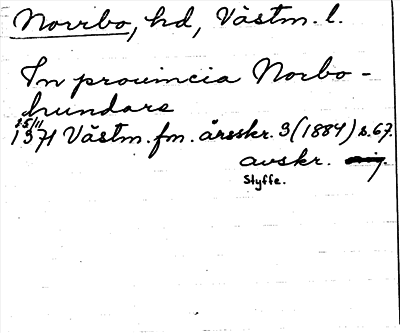 Norrbo, hd, Västm. l.
In prouincia Norbo-
hundare
25/11
1371 Västm. fm. årsskr. 3 (1884) s. 67.
avskr.
Styffe.